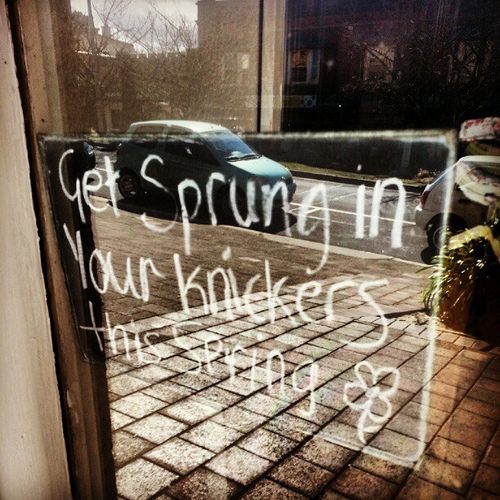 Get Sprung in
Your Knickers
this Spring